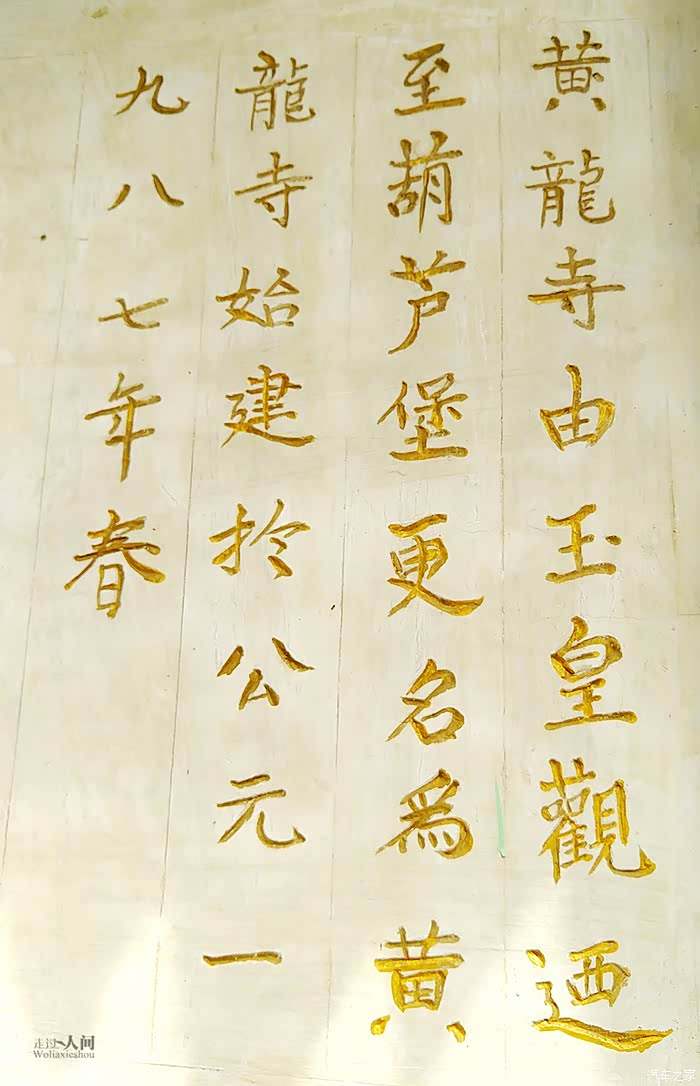 黄龍寺由玉皇觀迺
至葫芦堡更名爲黄
龍寺始建於公元一
九八七年春
走过人间
Woliaxieshou
汽车之家